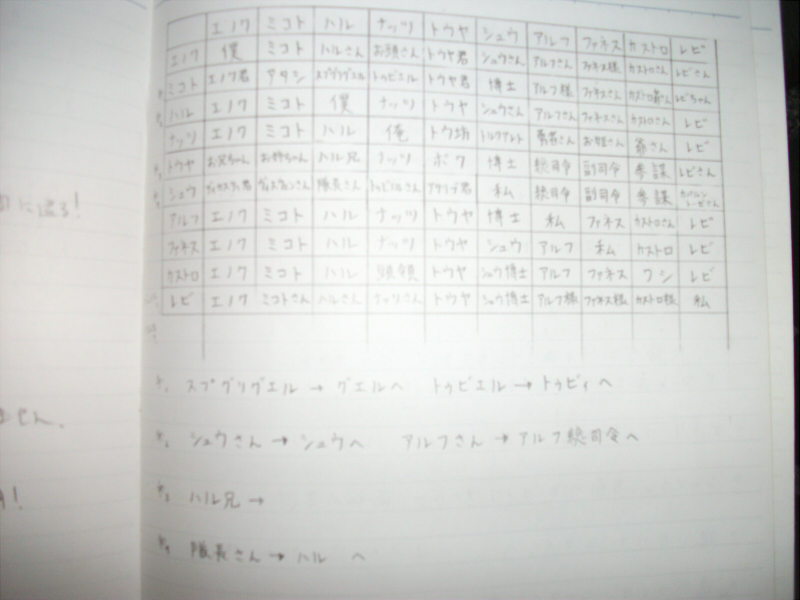 に送る！
エノク ミコト ハル ナッツ トウヤ シュウ アルフ ファネス カストロ レビ
エノク 僕 ミコト ハルさん お頭さん トウヤ君 シュウさん アルフさん ファネス様 カストロさん レビさん
ミコト エノク君 アタシ トゥビエル トウヤ君 博士 アルフ様 ファネスさん レビちゃん
ハル エノク ミコト 僕 ナッツ トウヤ シュウさん アルフさん ファネスさん カストロさん レビ
ナッツ エノク ミコト ハル 俺 トウ坊 お姫さん 爺さん レビ
トウヤ お兄ちゃん お姉ちゃん ハル兄 ナッツ ボク 博士 総司令 副司令 参謀 レビさん
シュウ 隊長さん 私 総司令 副司令 参謀
アルフ エノク ミコト ハル ナッツ トウヤ 博士 私 ファネス カストロさん レビ
ファネス エノク ミコト ハル ナッツ トウヤ シュウ アルフ 私 カストロ レビ
カストロ エノク ミコト ハル 頭領 トウヤ シュウ博士 アルフ ファネス ワシ レビ
レビ エノク ミコトさん ハルさん ナッツさん トウヤ シュウ博士 アルフ様 ファネス様 カストロ様 私
*1 スプグリグエル → グエルへ トゥビエル → トゥビィへ
せん。
*2 シュウさん → シュウへ アルフさん → アルフ総司令へ
！
*3 ハル兄 →
*4 隊長さん → ハル へ